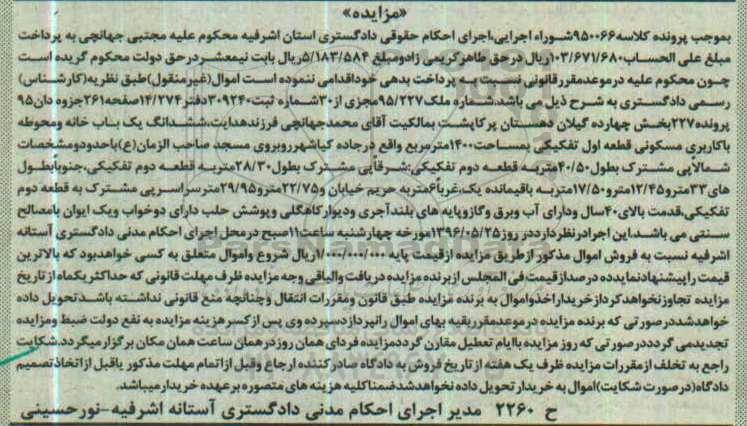 «مزایده»
بموجب پرونده کلاسه۹۵۰۰۶۶شوراء اجرایی،اجرای احکام حقوقی دادگستری استان اشرفیه محکوم علیه مجتبی جهانچی به پرداخت
مبلغ علی الحساب۱۰۳/۶۷۱/۶۸۰ریال درحق طاهرکریمی زادومبلغ ۵/۱۸۳/۵۸۴ریال بابت نیمعشردرحق دولت محکوم گریده است
چون محکوم علیه درموعدمقررقانونی نسبت به پرداخت بدهی خوداقدامی ننموده است اموال(غیرمنقول)طبق نظریه(کارشناس)
رسمی دادگستری به شرح ذیل می باشد.شماره ملک۹۵/۲۲۷مجزی از۳۰شماره ثبت۳۰۹۲۴۰دفتر۱۴/۲۷۴صفحه۲۶۱جزوه دان۹۵
پرونده۲۲۷بخش چهارده گیلان دهستان پرکاپشت بمالکیت آقای محمدجهانچی فرزندهدایت،ششدانگ یک باب خانه ومحوطه
باکاربری مسکونی قطعه اول تفکیکی بمساحت۱۴۰۰مترمربع واقع درجاده کیاشهرروبروی مسجد صاحب الزمان(ع)باحدودومشخصات
شمالاًپی مشترک بطول۴۰/۵۰متربه قطعه دوم تفکیکی؛شرقاًپی مشترک بطول۲۸/۳۰متربه قطعه دوم تفکیکی،جنوبابطول
های۳۳مترو۱۲/۴۵مترو۱۷/۵۰متربه باقیمانده یک،غرباً۶متربه حریم خیابان و۲۲/۷۵مترو۲۹/۹۵مترسراسرپی مشترک به قطعه دوم
تفکیکی،قدمت بالای۴۰سال ودارای آب وبرق وگازوپایه های بلندآجری ودیوارکاهگلی وپوشش حلب دارای دوخواب ویک ایوان بامصالح
سنتی می باشد.این اجرادرنظرداردددر روز۱۳۹۶/۰۵/۲۵مورخه چهارشنبه ساعت۱۱صبح درمحل اجرای احکام مدنی دادگستری آستانه
اشرفیه نسبت به فروش اموال مذکور ازطریق مزایده ازقیمت پایه ۱/۰۰۰/۰۰۰/۰۰۰ریال شروع واموال متعلق به کسی خواهدبود که بالاترین
قیمت راپیشنهادنمایدده درصدازقیمت فی المجلس ازبرنده مزایده دریافت والباقی وجه مزایده ظرف مهلت قانونی که حداکثریکماه ازتاریخ
مزایده تجاوزنخواهدکردازخریداراخذواموال به برنده مزایده طبق قانون ومقررات انتقال وچنانچه منع قانونی نداشته باشدتحویل داده
خواهدشددرصورتی که برنده مزایده درموعدمقرربقیه بهای اموال رانپردازدسپرده وی پس ازکسرهزینه مزایده به نفع دولت ضبط ومزایده
تجدیدمی گردددرصورتی که روز مزایده باایام تعطیل مقارن گرددمزایده فردای همان روزدرهمان ساعت همان مکان برگزارمیگردد.شکایت
راجع به تخلف ازمقررات مزایده ظرف یک هفته ازتاریخ فروش به دادگاه صادرکننده ارجاع وقبل ازاتمام مهلت مذکور یاقبل ازاتخاذتصمیم
دادگاه(درصورت شکایت)اموال به خریدارتحویل داده نخواهدشدضمناکلیه هزینه های متصوره برعهده خریدارمیباشد.
ح ۲۲۶۰ مدیر اجرای احکام مدنی دادگستری آستانه اشرفیه-نورحسینی